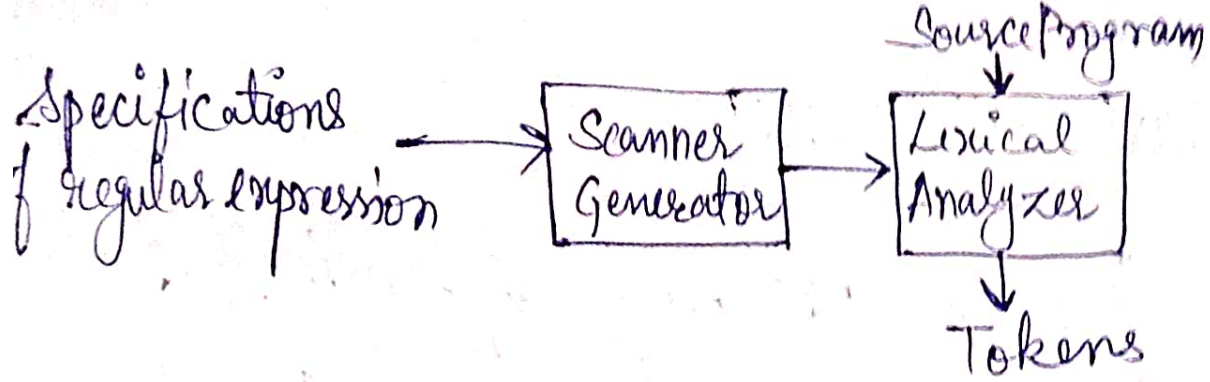 Source Program
Specifications
of regular expression
Scanner
Generator
Lexical
Analyzer
Tokens